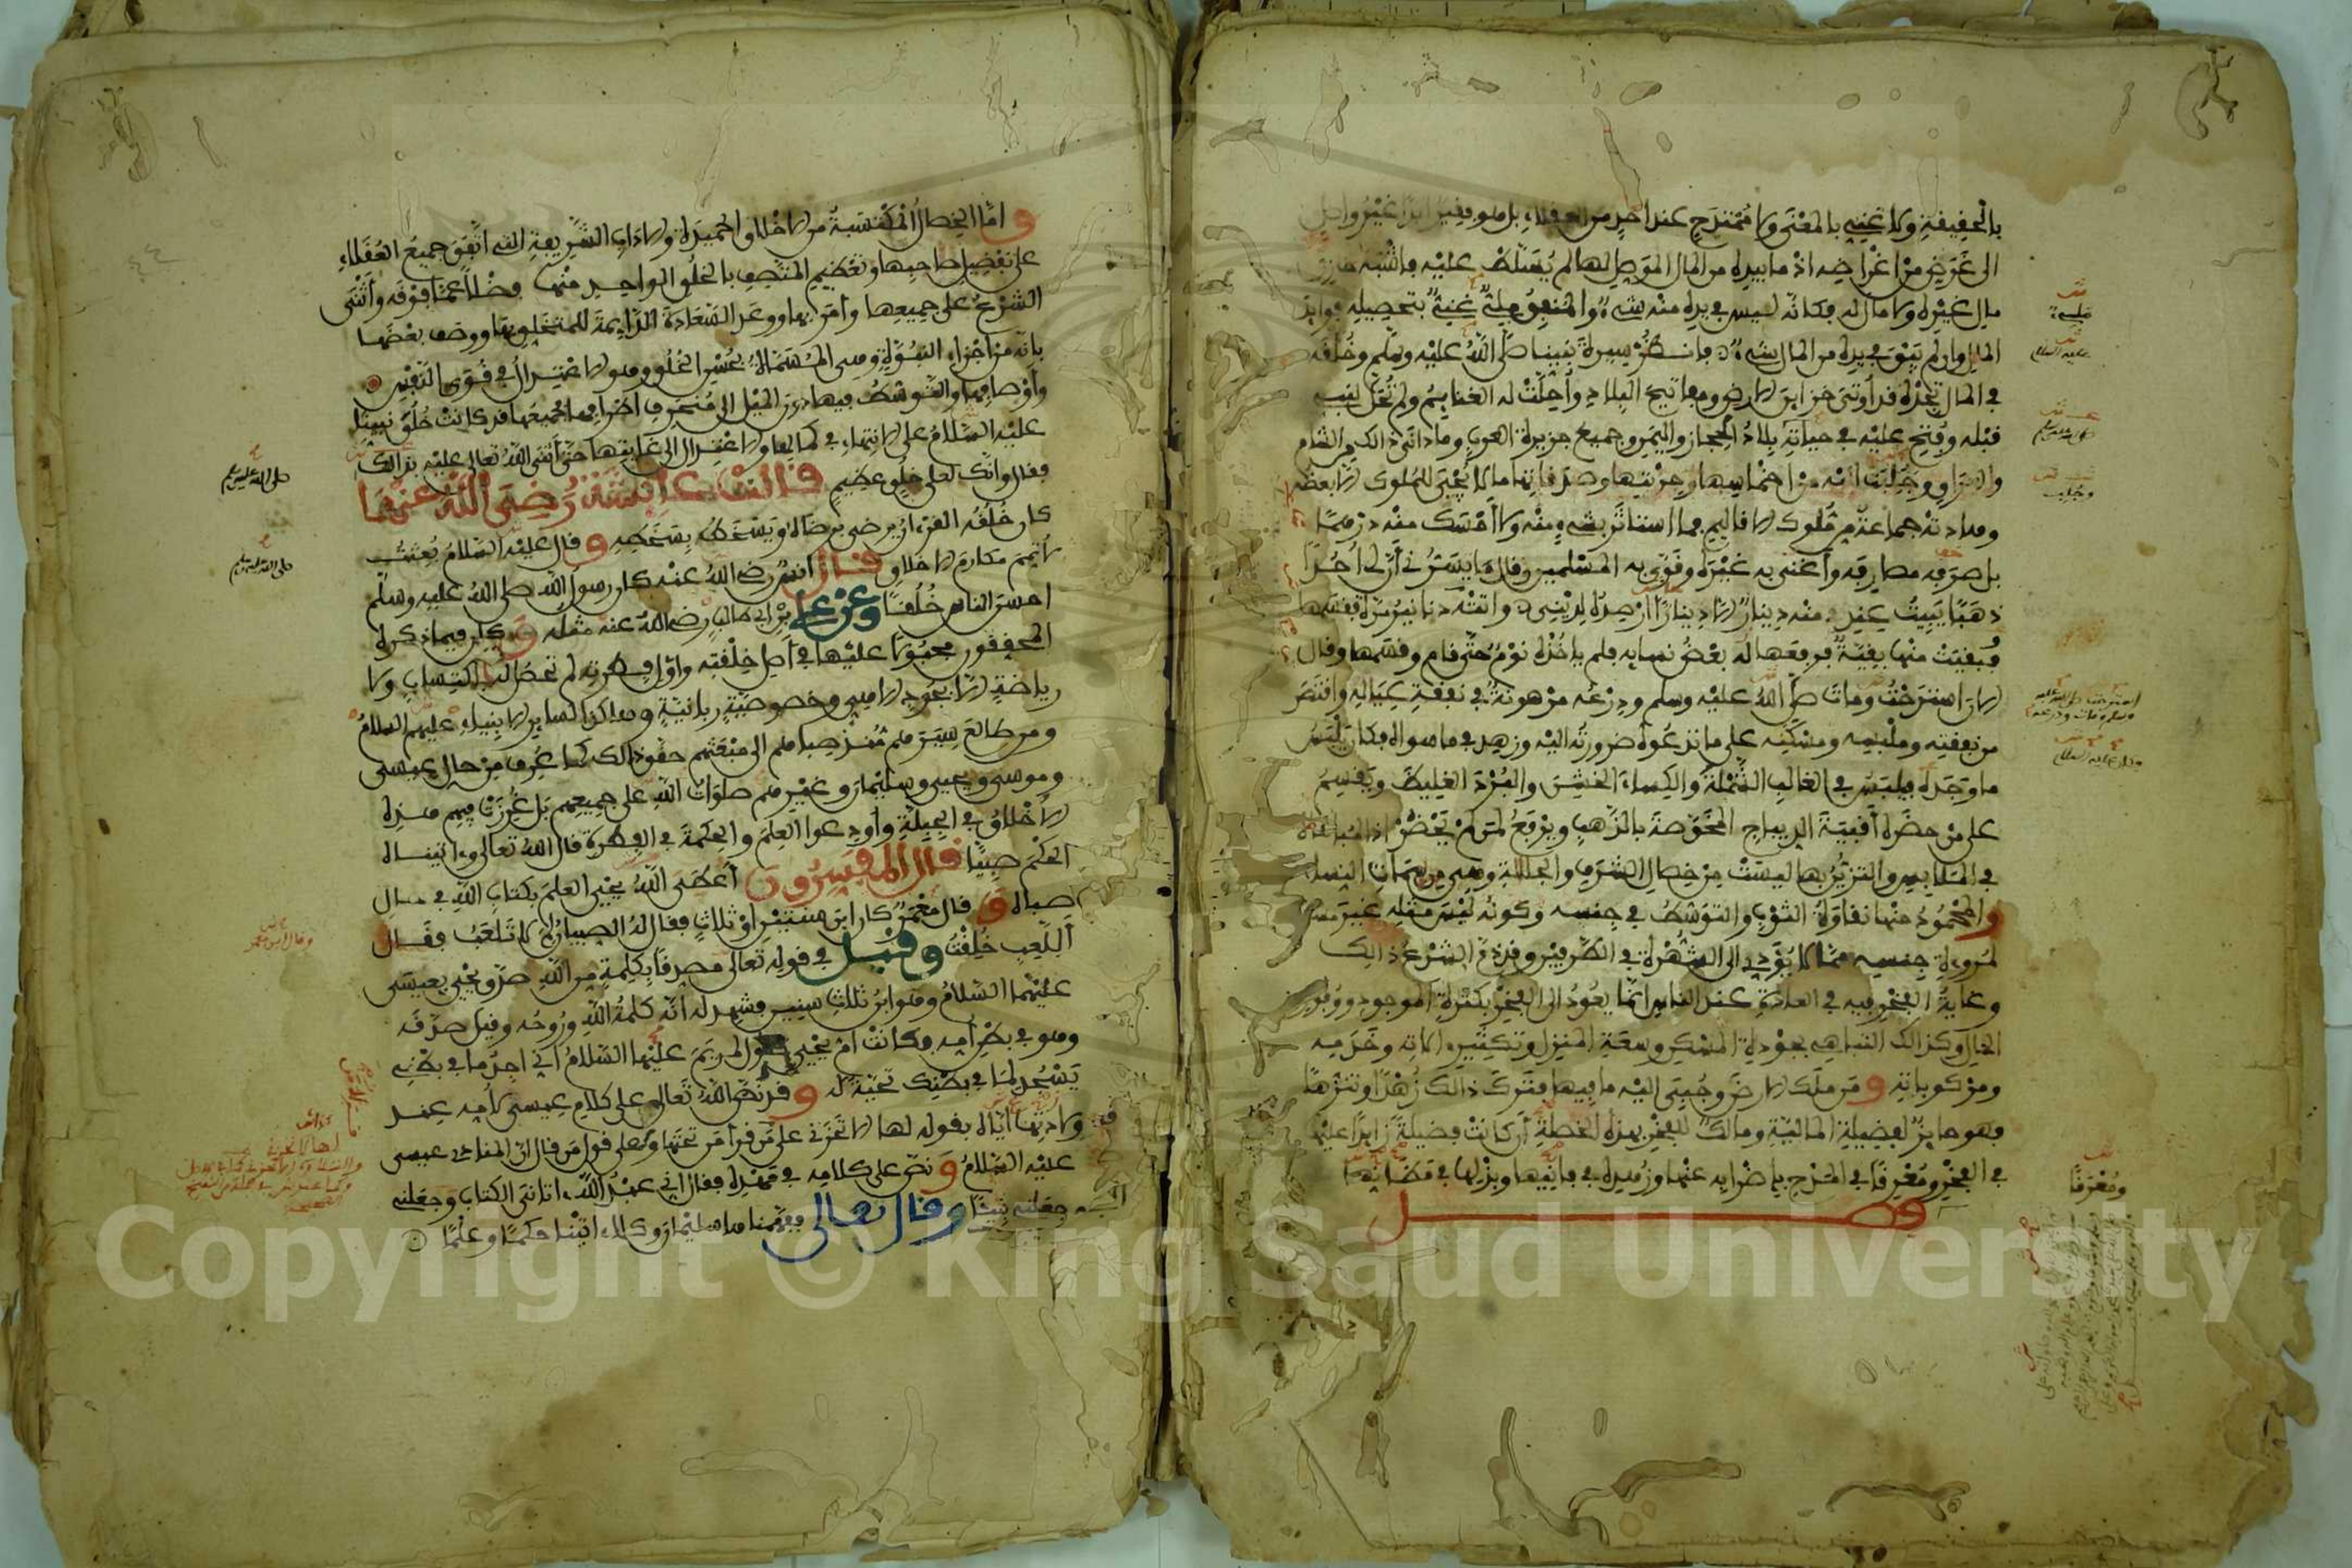 بالحقيقة ولا غني بالمعنى ولا ممتدح عند احد من العقلاء بل هو فقير ابدا غير واصل
الى غرض من اغراضه اذ ما بيده من المال الموصل لها لم يسلط عليه فاشبه خازن
مال غيره ولا مال له فكانه ليس في يده منه شيء والمنفق مليء غني بتحصيله فوايد
المال وان لم يبق في يده من المال شيء فانظر سيرة نبينا صلى الله عليه وسلم وخلقه
في المال تجده قد اوتي خزاين الارض ومفاتيح البلاد وأحلت له الغنايم ولم تحل لنبي
قبله وفتح عليه في حياته بلاد الحجاز واليمن وجميع جزيرة العرب وما دانى ذالك من الشام
والعراق وجلبت اليه من اخماسها وجزيتها وصدقاتها ما لا يجبى للملوك الا بعضه
وهادته جماعة من ملوك الاقاليم فما استاثر بشيء منه ولا امسك منه درهما
بل صرفه مصارفه وأغنى به غيره وقوى به المسلمين وقال ما يسرني أن لي أحدا
ذهبا يبيت عندي منه دينار الا دينارا ارصده لديني واتته دنانير مرة فقسمها
وبقيت منها بقية فرفعها لبعض نسايه فلم ياخذه نوم حتى قام وقسمها وقال
الان استرحت ومات صلى الله عليه وسلم ودرعه مرهونة في نفقة عياله واقتصر
من نفقته وملبسه ومسكنه على ما تدعوه ضرورته اليه وزهد في ما سواه فكان يلبس
ما وجده فيلبس في الغالب الشملة والكساء الخشن والبرد الغليظ ويقسم
على من حضره أقبية الديباج المخوصة بالذهب ويرفع لمن لم يحضر اذ المباهاة
في الملابس والتزين بها ليست من خصال الشرف والجلالة وهي من سمات النساء
والمحمود منها نقاوة الثوب والتوسط في جنسه وكونه لبس مثله غير مسقط
لمروءة جنسه مما لا يؤدي الى الشهرة في الطرفين وقد ذم الشرع ذالك
وغاية الفخر فيه في العادة عند الناس انما يعود الى الفخر بكثرة الموجود ووفور
الحال وكذالك التباهي بجودة المسكن وسعة المنزل وتكثير الاته وخدمه
ومركوباته ومن ملك الارض وجبي اليه ما فيها فترك ذالك زهدا وتنزها
فهو حايز لفضيلة المالية ومالك للفخر بهذه الخصلة أن كانت فضيلة زايدا عليها
في الفخر ومعرقا في المدح باضرابه عنها وزهده في فانيها وبذلها في مظانها
فصل
واما الخصال المكتسبة من الاخلاق الحميدة والاداب الشريفة التي اتفق جميع العقلاء
على تفضيل صاحبها وتعظيم المتصف بالخلق الواحد منها فضلا عما فوقه وأثنى
الشرع على جميعها وأمر بها ووعد السعادة الدايمة للمتخلق بها ووصف بعضها
بانه من أجزاء النبوة وهي المسماة بحسن الخلق وهو الاعتدال في قوى النفس
وأوصافها والتوسط فيها دون الميل الى منحرف اطرافها فجميعها قد كانت خلق نبينا
عليه السلام على الانتهاء في كمالها والاعتدال الى غايتها حتى أثنى الله تعالى عليه بذالك
فقال وانك لعلى خلق عظيم قالت عايشة رضي الله عنها
كان خلقه القرءان يرضى برضاه ويسخط بسخطه وقال عليه السلام بعثت
لأتمم مكارم الاخلاق قال أنس رضي الله عنه كان رسول الله صلى الله عليه وسلم
احسن الناس خلقا وعن علي بن ابي طالب رضي الله عنه مثله وكان فيما ذكره
المحققون مجبولا عليها في أصل خلقته واول فطرته لم تحصل له باكتساب ولا
رياضة الا بجود الاهي وخصوصية ربانية وهاكذا لساير الانبياء عليهم السلام
ومن طالع سيرهم منذ صباهم الى مبعثهم حقق ذالك كما عرف من حال عيسى
وموسى ويحيى وسليمان وغيرهم صلوات الله على جميعهم بل غرزت فيهم هذه
الأخلاق في الجبلة وأودعوا العلم والحكمة في الفطرة قال الله تعالى وءاتيناه
الحكم صبيا قال المفسرون أعطى الله يحيى العلم بكتاب الله في حال
صباه وقال معمر كان ابن سنتين او ثلاث فقال له الصبيان لم لا تلعب فقال
أللعب خلقت وقيل في قوله تعالى مصدقا بكلمة من الله صدق يحيى بعيسى
عليهما السلام وهو ابن ثلاث سنين فشهد له انه كلمة الله وروحه وقيل صدقه
وهو في بطن امه وكانت ام يحيى تقول لمريم عليها السلام اني اجد ما في بطني
يسجد لما في بطنك تحية له وقد نص الله تعالى على كلام عيسى لأمه عند
ولادتها اياه بقوله لها الا تحزني على من قرأ من تحتها وعلى قول من قال ان المنادي عيسى
عليه السلام ونص على كلامه في مهده فقال اني عبد الله ءاتاني الكتاب وجعلني
نبيا وقال تعالى ففهمناها سليمان وكلا ءاتينا حكما وعلما
صلى الله عليه وسلم
صلى الله عليه وسلم
وقال ابن معمر
عليه السلام
وجلب
ومعرقا